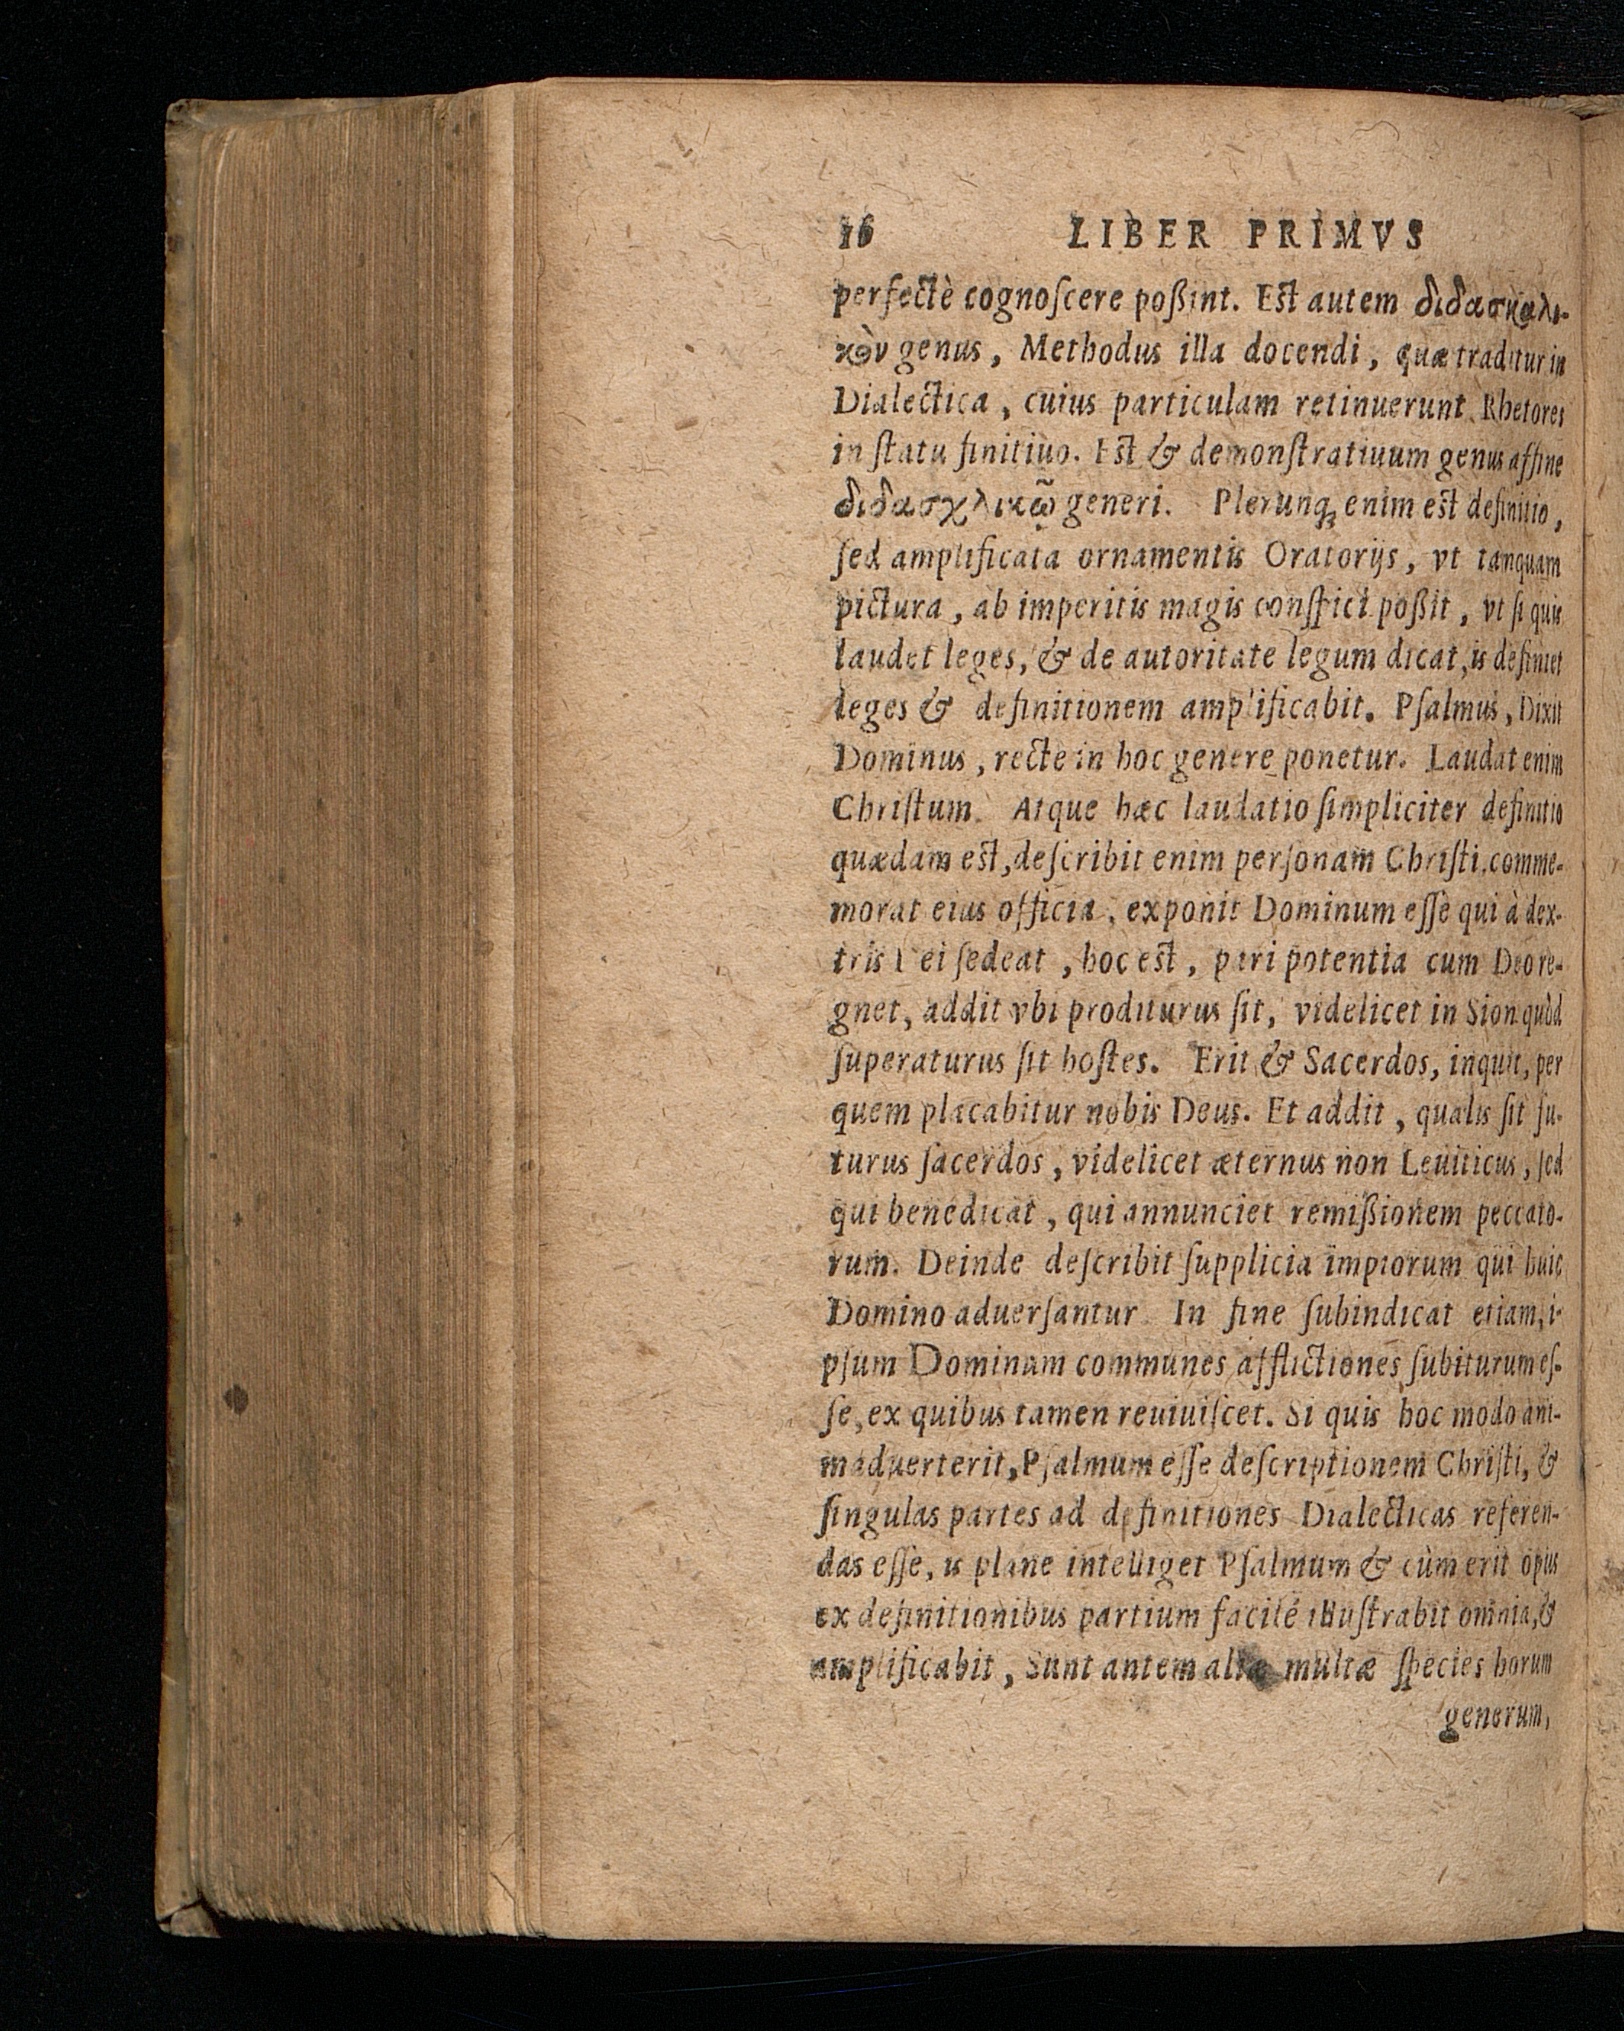 16 LIBER PRIMVS
perfectè cognoſcere poßint. Est autem διδασκαλι-
κὸν genus, Methodus illa docendi, quæ traditur in
Dialectica, cuius particulam retinuerunt Rhetores
in ſtatu finitiuo. Est & demonſtratiuum genus affine
διδασχλικῷ generi. Plerunq; enim est definitio,
ſed amplificata ornamentis Oratorijs, vt tanquam
pictura, ab imperitis magis conſpici poßit, vt ſi quis
laudet leges, & de autoritate legum dicat, is definiet
leges & definitionem amplificabit. Pſalmus, Dixit
Dominus, recte in hoc genere ponetur. Laudat enim
Chriſtum. Atque hæc laudatio ſimpliciter definitio
quædam est, deſcribit enim perſonam Chriſti, comme-
morat eius officia, exponit Dominum eſſe qui à dex-
tris Dei ſedeat, hoc est, pari potentia cum Deo re-
gnet, addit vbi proditurus ſit, videlicet in Sion quòd
ſuperaturus ſit hoſtes. Erit & Sacerdos, inquit, per
quem placabitur nobis Deus. Et addit, qualis ſit fu-
turus ſacerdos, videlicet æternus non Leuiticus, ſed
qui benedicat, qui annunciet remißionem peccato-
rum. Deinde deſcribit ſupplicia impiorum qui huic
Domino aduerſantur. In fine ſubindicat etiam, i-
pſum Dominum communes afflictiones ſubiturum eſ-
ſe, ex quibus tamen reuiuiſcet. Si quis hoc modo ani-
maduerterit, Pſalmum eſſe deſcriptionem Chriſti, &
ſingulas partes ad definitiones Dialecticas referen-
das eſſe, is plane intelliget Pſalmum & cùm erit opus
ex definitionibus partium facilé illuſtrabit omnia, &
amplificabit, Sunt antem aliæ multæ ſpecies horum
generum,